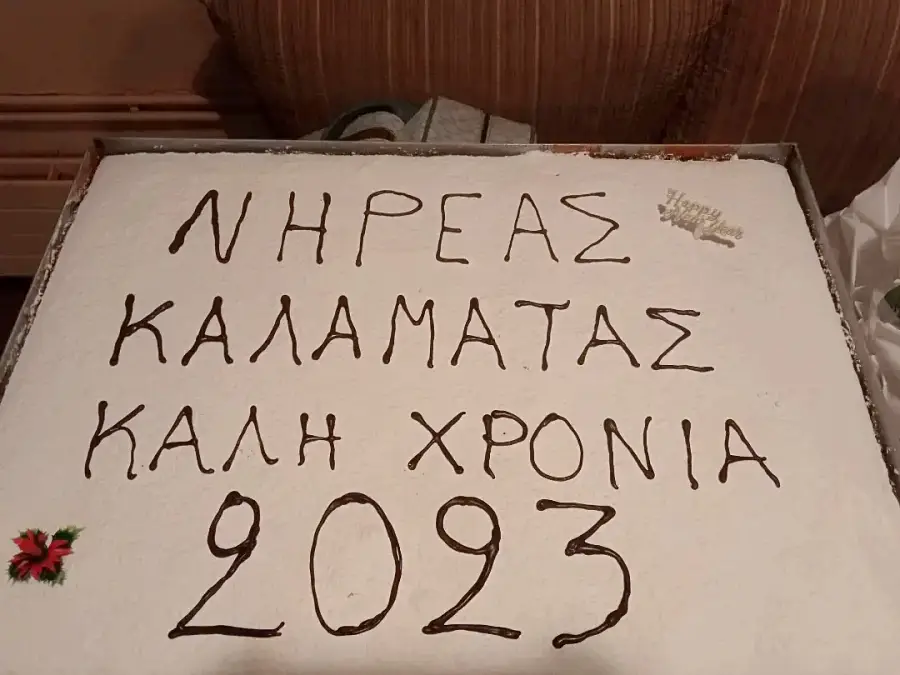 ΝΗΡΕΑΣ
Happy
New Year
ΚΑΛΑΜΑΤΑΣ
ΚΑΛΗ ΧΡΟΝΙΑ
2023